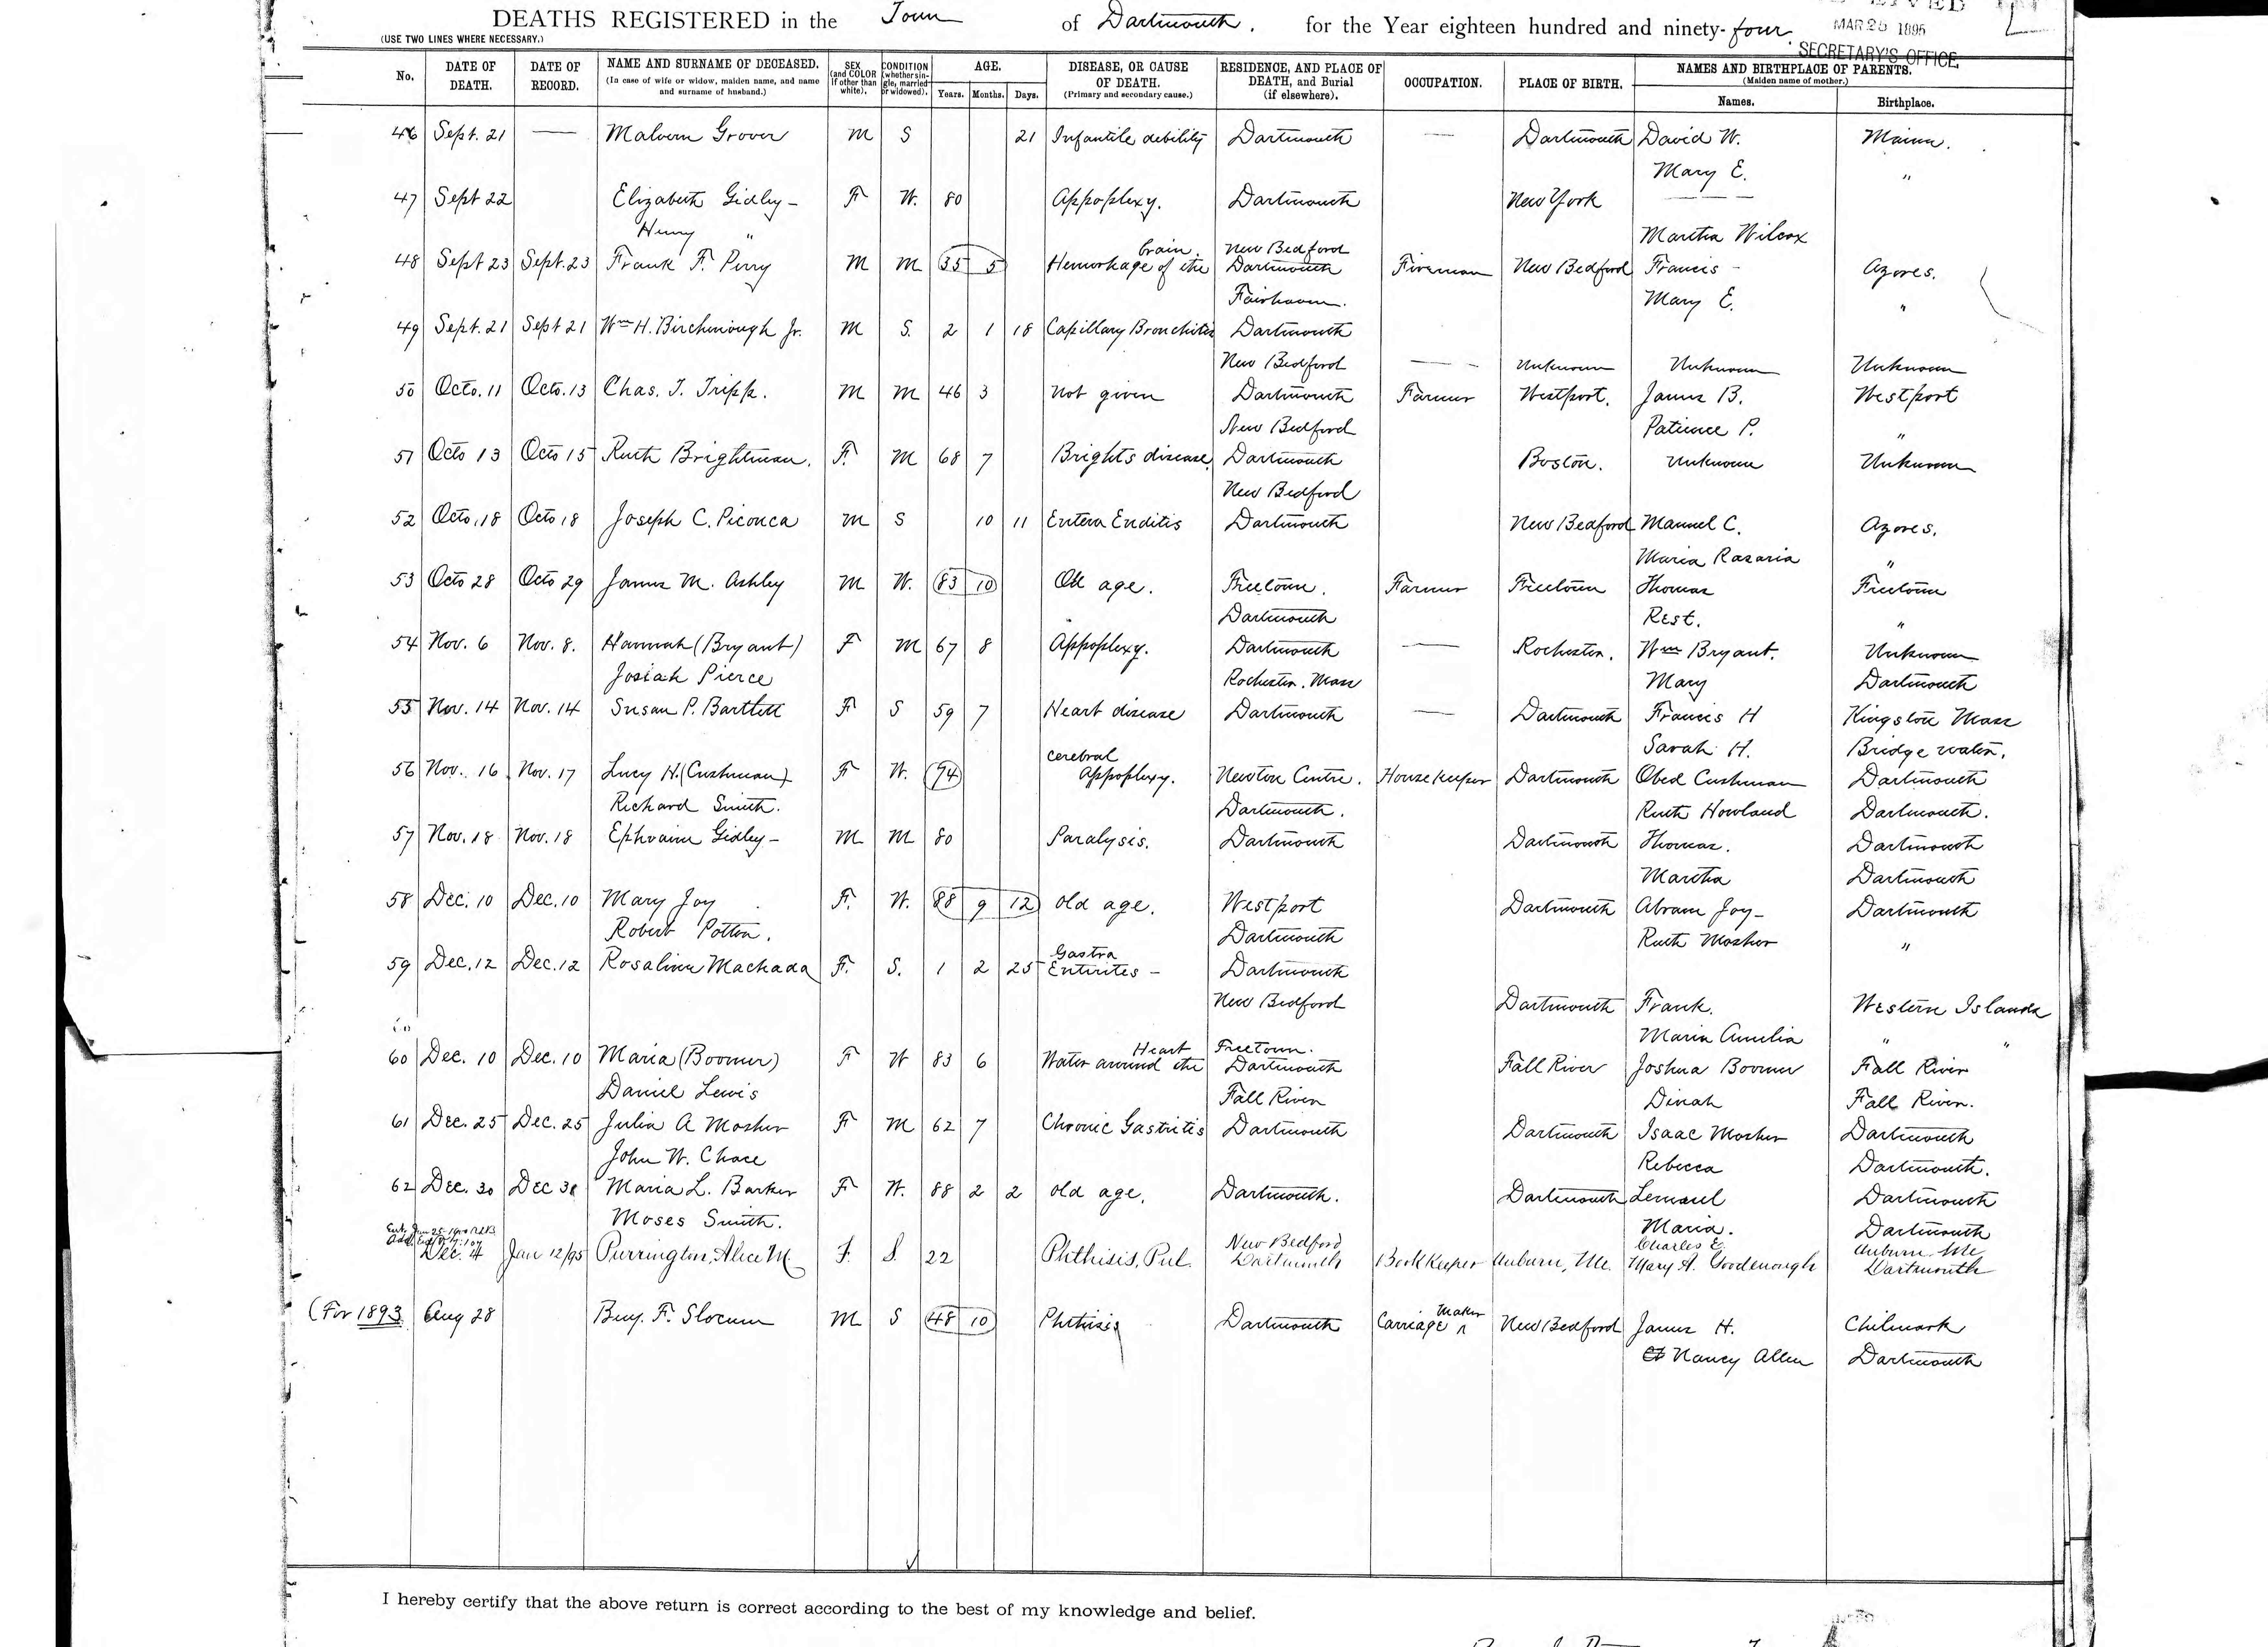 DEATHS REGISTERED in the Town of Dartmouth. for the Year eighteen hundred and ninety-four.
MAR 25 1895
SECRETARY'S OFFICE
(USE TWO LINES WHERE NECESSARY.)
No. DATE OF DEATH. DATE OF RECORD. NAME AND SURNAME OF DECEASED. (In case of wife or widow, maiden name, and name and surname of husband.) SEX (and COLOR if other than white). CONDITION (whether single, married or widowed). AGE. Years. Months. Days. DISEASE, OR CAUSE OF DEATH. (Primary and secondary cause.) RESIDENCE, AND PLACE OF DEATH, and Burial (if elsewhere). OCCUPATION. PLACE OF BIRTH. NAMES AND BIRTHPLACE OF PARENTS. (Maiden name of mother.) Names. Birthplace.
46 Sept. 21 — Malvern Grover M S 21 Infantile debility Dartmouth — Dartmouth David W. Maine.
Mary E. "
47 Sept 22 Elizabeth Gidley- F W. 80 Appoplexy. Dartmouth New York —
Henry " Martha Wilcox
48 Sept 23 Sept. 23 Frank F. Perry M M 35 5 Hemorhage of the brain New Bedford Dartmouth Fireman New Bedford Francis - Azores.
Fairhaven. Mary E. "
49 Sept. 21 Sept 21 Wm H. Birchmough Jr. M S. 2 1 18 Capillary Bronchites Dartmouth
New Bedford — Unknown Unknown Unknown
50 Octo. 11 Octo. 13 Chas. T. Tripp. M M 46 3 not given Dartmouth Farmer Westport. James B. Westport
New Bedford Patience P. "
51 Octo 13 Octo 15 Ruth Brightman. F. M 68 7 Brights disease. Dartmouth Boston. Unknown Unknown
New Bedford
52 Octo. 18 Octo 18 Joseph C. Piconca M S 10 11 Entera Enditis Dartmouth New Bedford Manuel C. Azores.
Maria Razaria "
53 Octo 28 Octo 29 James M. Ashley M W. 83 10 Old age. Freetown. Farmer Freetown Thomas Freetown
Dartmouth Rest. "
54 Nov. 6 Nov. 8. Hannah (Bryant) F M 67 8 Appoplexy. Dartmouth — Rochester. Wm Bryant. Unknown
Josiah Pierce Rochester. Mass Mary Dartmouth
55 Nov. 14 Nov. 14 Susan P. Bartlett F S 59 7 Heart disease Dartmouth — Dartmouth Francis H Kingston Mass
Sarah H. Bridgewater.
56 Nov. 16 Nov. 17 Lucy H. (Cushman) F W. 74 Cerebral Appoplexy. Newton Centre. Housekeeper Dartmouth Obed Cushman Dartmouth
Richard Smith. Dartmouth. Ruth Howland Dartmouth.
57 Nov. 18 Nov. 18 Ephraim Gidley- M M 80 Paralysis. Dartmouth Dartmouth Thomas. Dartmouth
Martha Dartmouth
58 Dec. 10 Dec. 10 Mary Joy F. W. 88 9 12 old age. Westport Dartmouth Abram Joy- Dartmouth
Robert Potton. Dartmouth Ruth Mosher "
59 Dec. 12 Dec. 12 Rosalina Machada F. S. 1 2 25 Gastra Entirites - Dartmouth
New Bedford Dartmouth Frank. Western Islands
Maria Amelia " "
60 Dec. 10 Dec. 10 Maria (Boomer) F W 83 6 Water around the Heart Freetown. Dartmouth Fall River Joshua Boomer Fall River
Daniel Lewis Fall River Dinah Fall River.
61 Dec. 25 Dec. 25 Julia A Mosher F M 62 7 Chronic Gastritis Dartmouth Dartmouth Isaac Mosher Dartmouth
John W. Chace Rebecca Dartmouth.
62 Dec. 30 Dec 30 Maria L. Barker F W. 88 2 2 old age. Dartmouth. Dartmouth Lemuel Dartmouth
Moses Smith. Maria. Dartmouth
Dec. 4 Jan 12/95 Purrington, Alice M. F. S. 22 Phthisis, Pul. New Bedford Dartmouth Book Keeper Auburn, Me. Charles E. Auburn Me
Mary A. Goodenough Dartmouth
(For 1893 Aug 28 Benj. F. Slocum M S 48 10 Phthisis Dartmouth Carriage Maker New Bedford James H. Chilmark
Nancy Allen Dartmouth
I hereby certify that the above return is correct according to the best of my knowledge and belief.